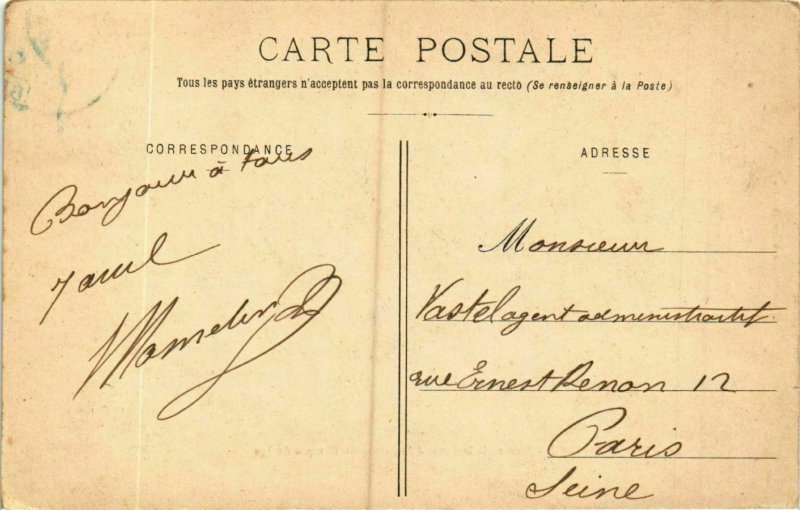 CARTE POSTALE
Tous les pays étrangers n'acceptent pas la correspondance au recto (Se renseigner à la Poste)
CORRESPONDANCE
Bonjour à tous
7 avril
ADRESSE
Monsieur
Vastel agent administratif
rue Ernest Renan 12
Paris
Seine